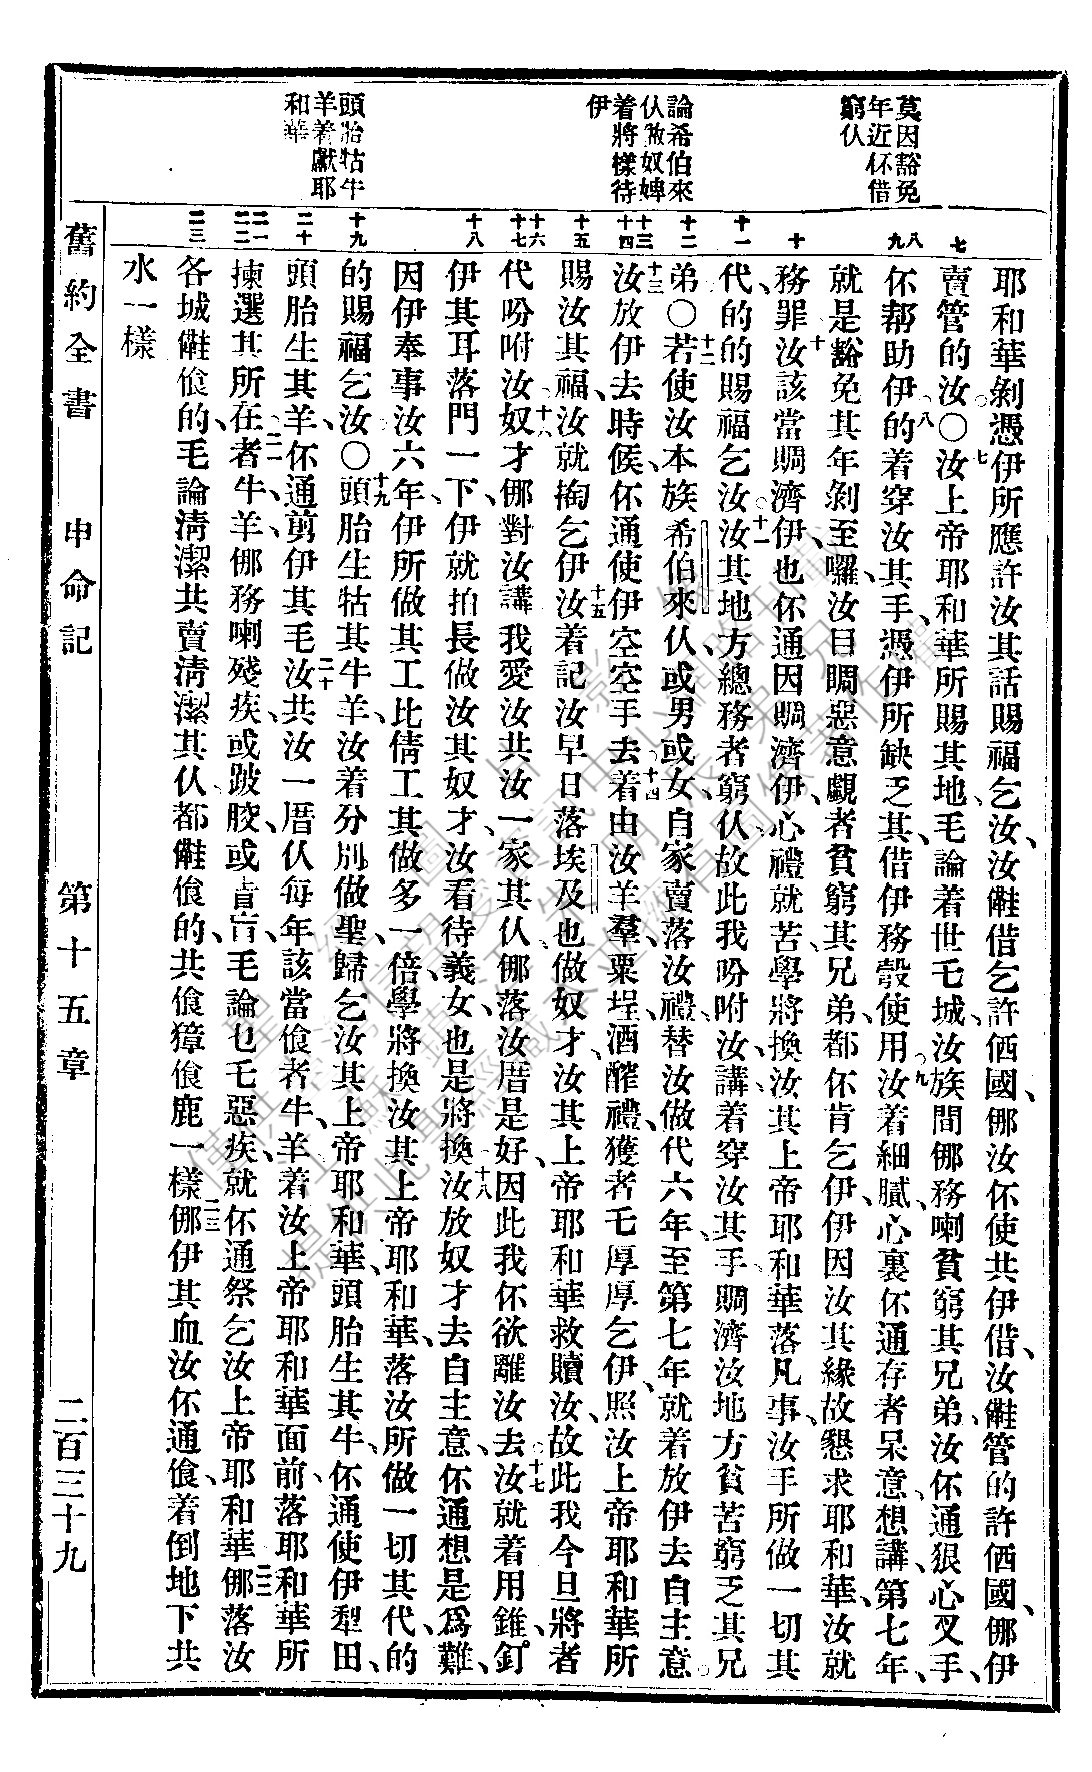 莫因豁免
年近伓借
窮伩
論希伯來
伩做奴婢
着將樣待
伊
頭胎牯牛
羊着獻耶
和華
七
八
九
十
十一
十二
十三
十四
十五
十六
十七
十八
十九
二十
二一
二二
二三
耶和華剝憑伊所應許汝其話賜福乞汝、汝礸借乞許価國、㑚汝伓使共伊借、汝礸管的許価國、㑚伊
賣管的汝。〇七汝上帝耶和華所賜其地、毛論着世乇城、汝族間㑚務喇貧窮其兄弟、汝伓通狠心叉手、
伓幫助伊的八着穿汝其手、憑伊所缺乏其、借伊務彀使用。九汝着細膩、心裏伓通存者呆意想講、第七年、
就是豁免其年剝至囉、汝目睭惡意覷者貧窮其兄弟、都伓肯乞伊、伊因汝其緣故懇求耶和華、汝就
務罪。十汝該當賙濟伊、也伓通因賙濟伊、心禮就苦、學將換汝其上帝耶和華、落凡事、汝手所做一切其
代的的賜福乞汝。十一汝其地方總務者窮伩、故此我吩咐汝、講着穿汝其手賙濟汝地方貧苦窮乏其兄
弟。〇十二若使汝本族希伯來伩、或男或女、自家賣落汝禮、替汝做代六年、至第七年就着放伊去自主意。
十三汝放伊去時候、伓通使伊空空手去。十四着由汝羊羣、粟埕、酒醡禮獲者乇厚厚乞伊、照汝上帝耶和華所
賜汝其福、汝就掏乞伊。十五汝着記汝早日落埃及也做奴才、汝其上帝耶和華救贖汝、故此我今旦將者
代吩咐汝。十六奴才㑚對汝講、我愛汝共汝一家其伩、㑚落汝厝是好、因此我伓欲離汝去。十七汝就着用錐、釘
伊其耳落門一下、伊就拍長做汝其奴才、汝看待義女也是將換。十八汝放奴才去自主意、伓通想是爲難、
因伊奉事汝六年、伊所做其工比倩工其做多一倍、學將換汝其上帝耶和華、落汝所做一切其代、的
的賜福乞汝。〇十九頭胎生牯其牛羊、汝着分別做聖、歸乞汝其上帝耶和華、頭胎生其牛、伓通使伊犁田、
頭胎生其羊、伓通剪伊其毛。二十汝共汝一厝伩每年該當飧者牛羊、着汝上帝耶和華面前、落耶和華所
揀選其所在。二一者牛羊㑚務喇殘疾、或跛骹、或青盲、毛論乜乇惡疾、就伓通祭乞汝上帝耶和華。二二㑚落汝
各城礸飧的、毛論淸潔共賣淸潔其伩都礸飧的、共飧獐飧鹿一樣。二三㑚伊其血汝伓通飧、着倒地下共
水一樣
舊約全書
申命記
第十五章
二百三十九